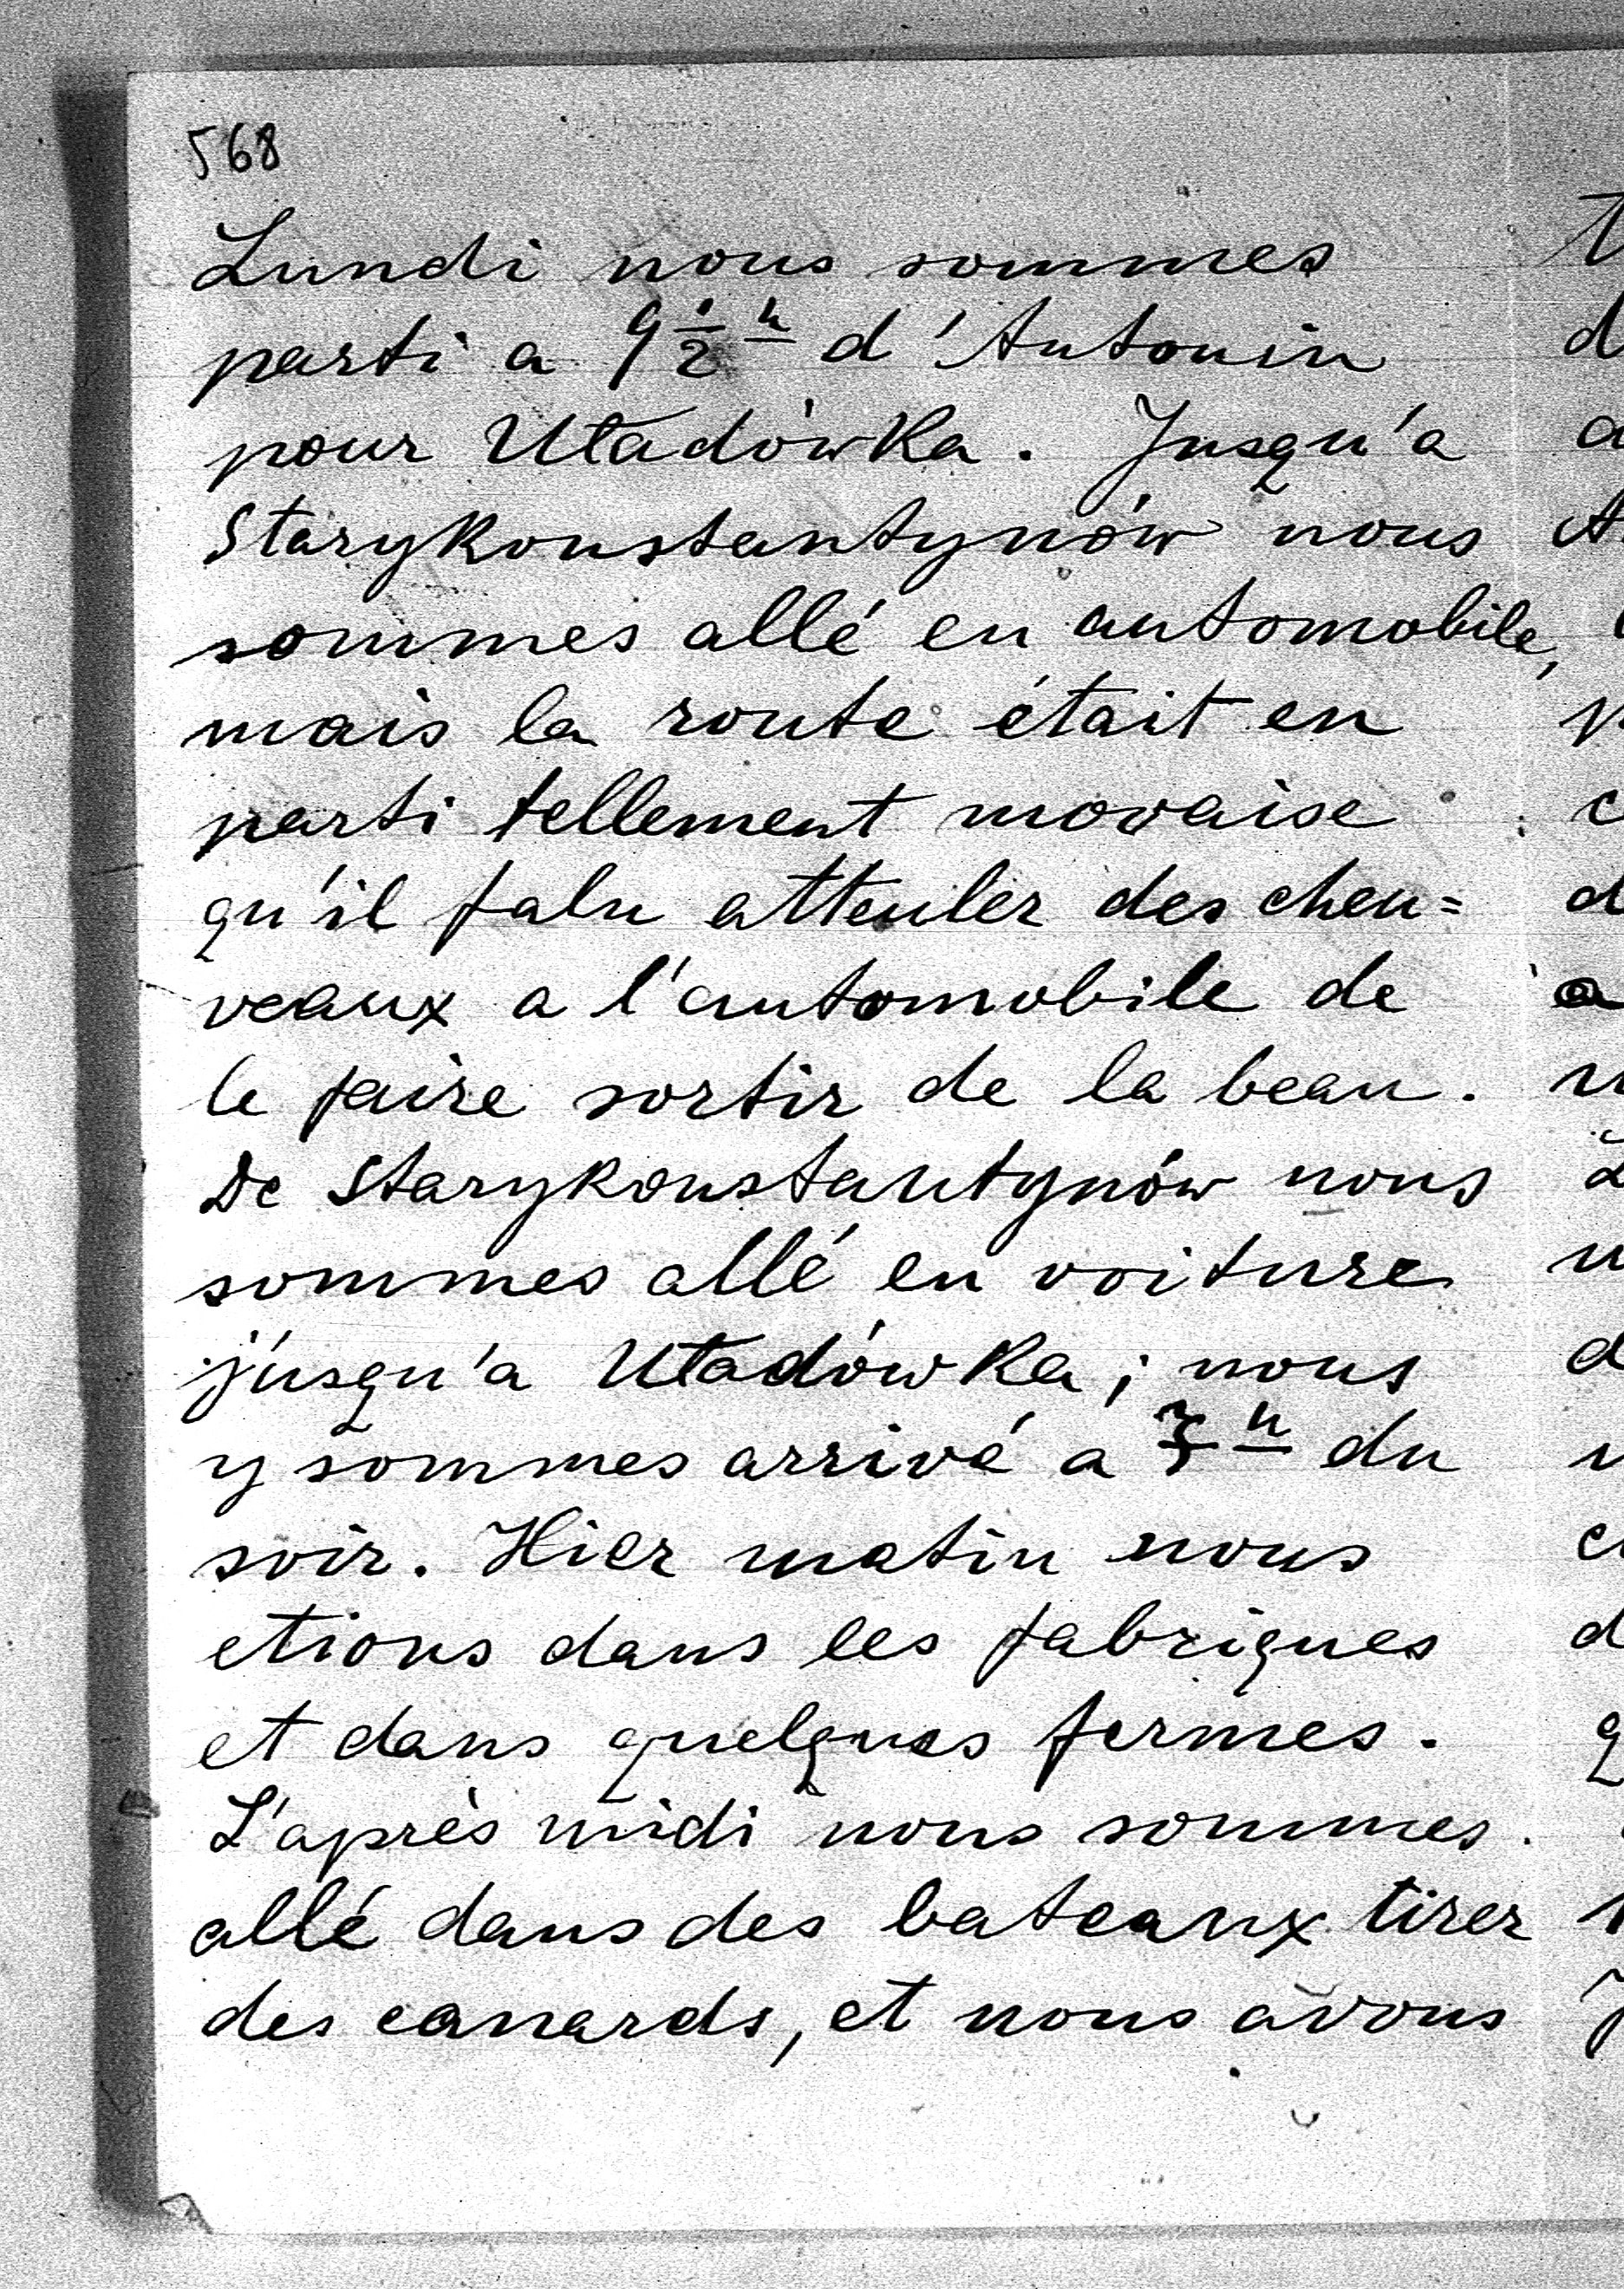 568
Lundi nous sommes
parti a 9 1/2 h d'Antonin
pour Utadówka. Jusqu'a
Starykonstantynów nous
sommes allé en automobile,
mais la route était en
parti tellement movaise
qu'il falu atteuler des cheu=
veaux a l'automobile de
le faire sortir de la beau.
De Starykonstantynów nous
sommes allé en voiture
jusqu'a Utadówka; nous
y sommes arrivé a 7 h du
soir. Hier matin nous
etions dans les fabriques
et dans quelques fermes.
L'après midi nous sommes
allé dans des bateaux tirer
des canards, et nous avons